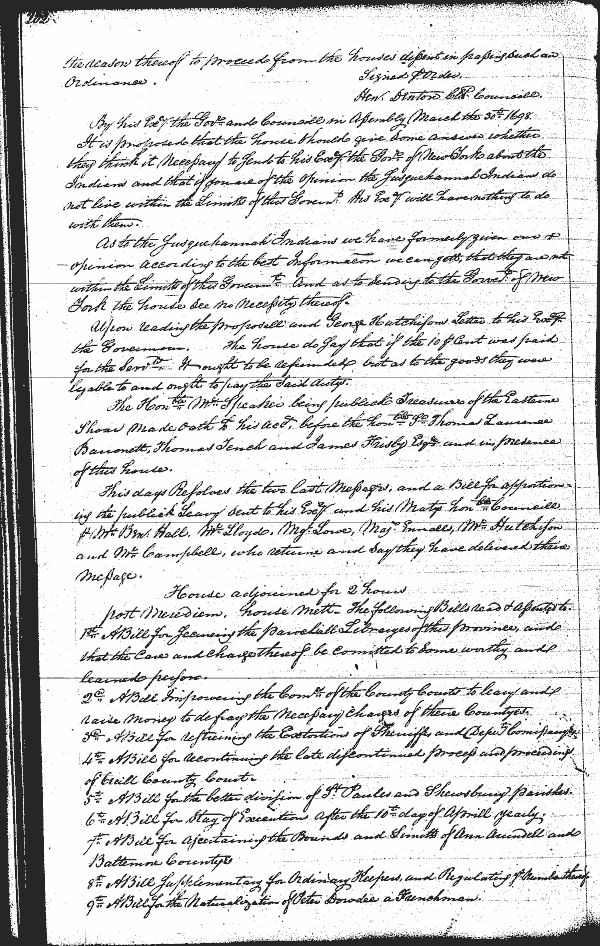 the reason thereof to proceed from the houses dissent in passing such an
Ordinance.
Signed p Order
Hen. Denton Clk Councill.
By his Exc.y the Gov.r and Councill in Assembly March the 30.th 1698.
It is proposed that the house should give some answer whether
they think it Necessary to send to his Exc.y the Gov.r of New York about the
Indians and that if you are of the opinion the Susquehannah Indians do
not live within the Limitts of this Governm.t His Exc.y will have nothing to do
with them.
As to the Susquehannah Indians we have formerly given our
opinion according to the best Information we can gett, that they are not
within the Limitts of this Governm.t And as to sending to the Govern.r of New
York the house see no Necessity thereof.
Upon reading the proposall and George Hutchisons Letter to his Exc.y
the Governour. The house do say that if the 10 p Cent was paid
for the Serv.ts It ought to be refunded but as to the goods they were
lyable to and ought to pay the said duty.
The Hon.ble M.r Speaker being publick Treasurer of the Easterne
Shoar made Oath to his Acc.t before the hon.ble S.r Thomas Laurence
Barronett, Thomas Tench and James Frisby Esq.rs and in presence
of this house.
This days Resolves the two last Messages, and a Bill for apportion-
ing the publick Leavy sent to his Exc.y and his Maj.tys hon.ble Councill
p M.r Ben. Hall, M.r Lloyd, Maj.r Lowe, Maj.r Ennalls, M.r Hutchison
and M.r Campbell, who returne and say they have delivered their
Message.
House adjourned for 2 hours
post Meridiem, house mett. The following Bills read & assented to.
1.st A Bill for securing the parochiall Libraryes of this province, and
that the Care and charge thereof be comitted to some worthy and
learned person.
2.d A Bill Impowering the Com.rs of the County Courts to leavy and
raise money to defray the Necessary charges of their Countyes.
3.d A Bill for restraining the Extortions of Sheriffs and Dep.ty Comissarys
4.th A Bill for recontinuing the late discontinued process and proceeding
of Cecill County Court.
5.th A Bill for the better division of S.t Paules and Shewsbury parishes.
6.th A Bill for Stay of Execution after the 10.th day of Aprill yearly.
7.th A Bill for Ascertaining the Bounds and Limitts of Ann Arundell and
Baltemore Countyes
8.th A Bill Supplementary for Ordinary Keepers, and Regulating y.e number thereof
9.th A Bill for the Naturalization of Peter Dowdee a Frenchman.